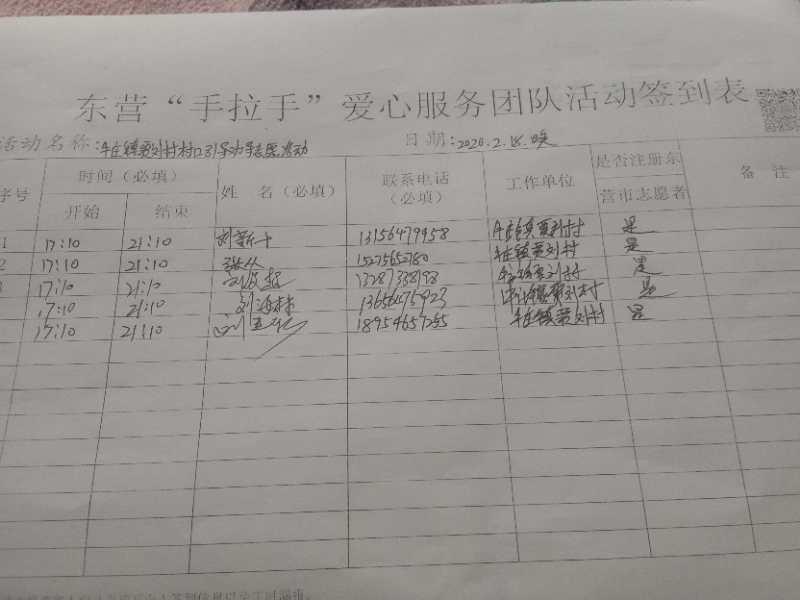 东营“手拉手”爱心服务团队活动签到表
活动名称: 牛庄镇贾刘村村口引导劝导志愿活动 日期: 2020.2.18.晚
序号 时间（必填） 姓 名（必填） 联系电话（必填） 工作单位 是否注册东营市志愿者 备 注
开始 结束
1 17:10 21:10 13156479958 牛庄镇贾刘村 是
2 17:10 21:10 15275652780 牛庄镇贾刘村 是
3 17:10 21:10 13287338198 牛庄镇贾刘村 是
17:10 21:10 刘海林 13656475923 牛庄镇贾刘村 是
17:10 21:10 18954657255 牛庄镇贾刘村 是